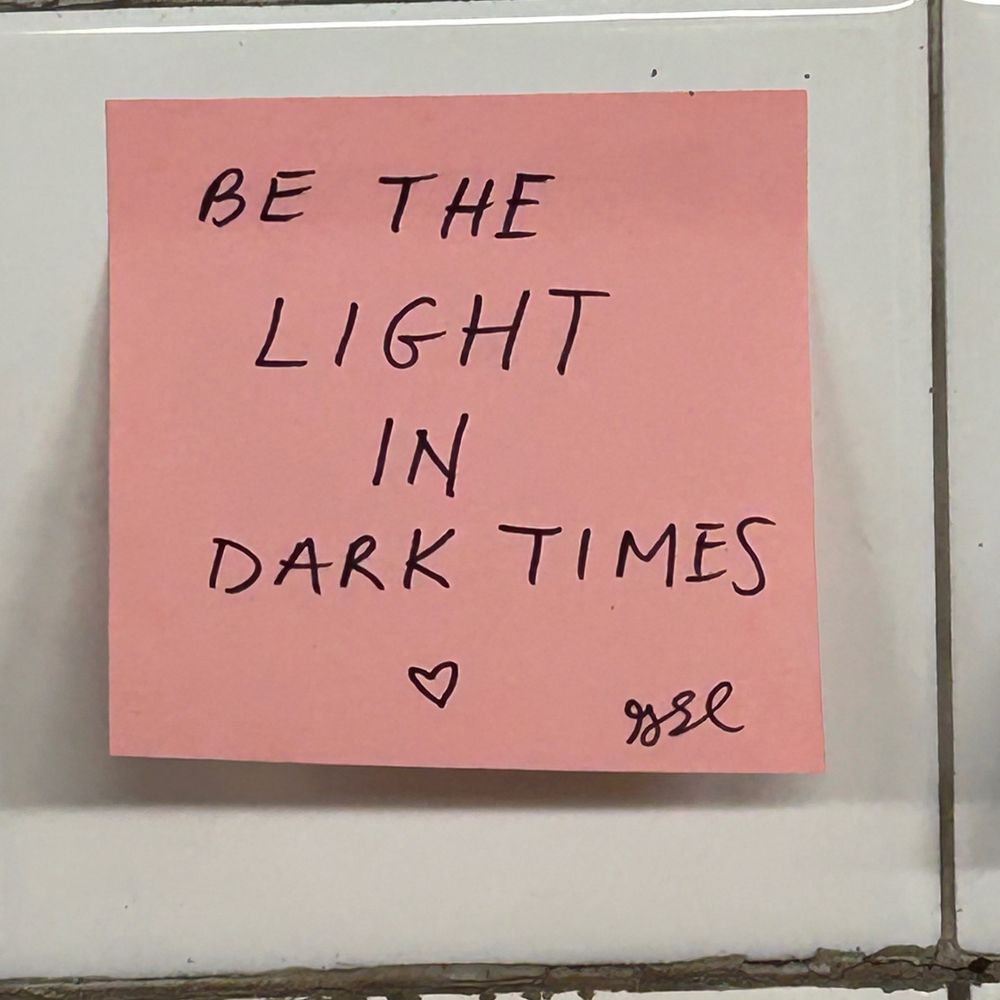 BE THE
LIGHT
IN
DARK TIMES